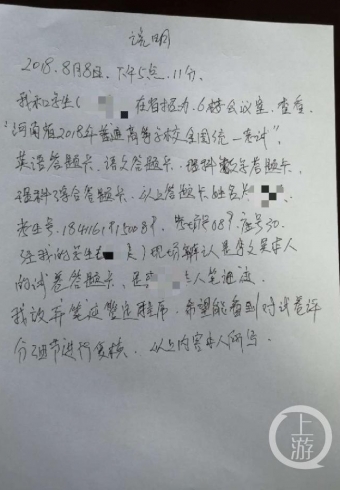 说明
2018.8月8日.下午5点.11分.
我和考生( 在省招办.6楼会议室.查看.
"河南省2018年普通高等学校全国统一考试",
英语答题卡.语文答题卡.理科数学答题卡.
理科综合答题卡.以上答题卡姓名
考生号. 考场号 座号30.
经我的考生 现场辨认是 本人
的试卷答题卡、 本人笔迹
我放弃笔迹鉴定程序.希望能看到对试卷评
分细节进行复核. 以上内容本人所写.
上游